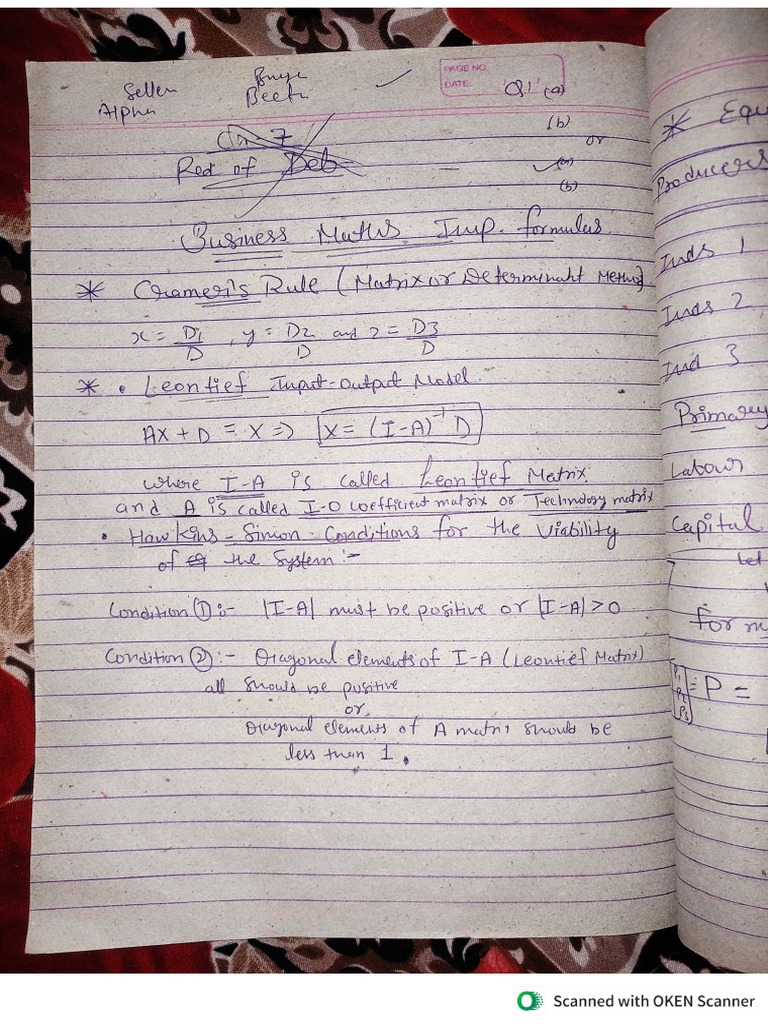 Seller Buye ✓
Alpha Beeta
PAGE NO.
DATE:
Q1 (a)
(b)
or
✓(a)
(b)
Ch-7
Red of Deb
Business Maths Imp. formulas
* Cramer's Rule (Matrix or Determinant Method)
x = D1/D , y = D2/D and z = D3/D
* • Leontief Input-Output Model.
AX + D = X => X = (I-A)⁻¹ D
where I-A is called Leontief Matrix.
and A is called I-O coefficient matrix or Technology matrix
• Hawkins - Simon - Conditions for the Viability
of the System :-
Condition ① :- |I-A| must be positive or |I-A| > 0
Condition ② :- Diagonal elements of I-A (Leontief Matrix)
all should be positive
or
Diagonal elements of A matrix should be
less than 1.
* Equ
Producers
Inds 1
Inds 2
Ind 3
Primary
Labour
Capital
Let
for m
P1
P2 = P =
P3
Scanned with OKEN Scanner